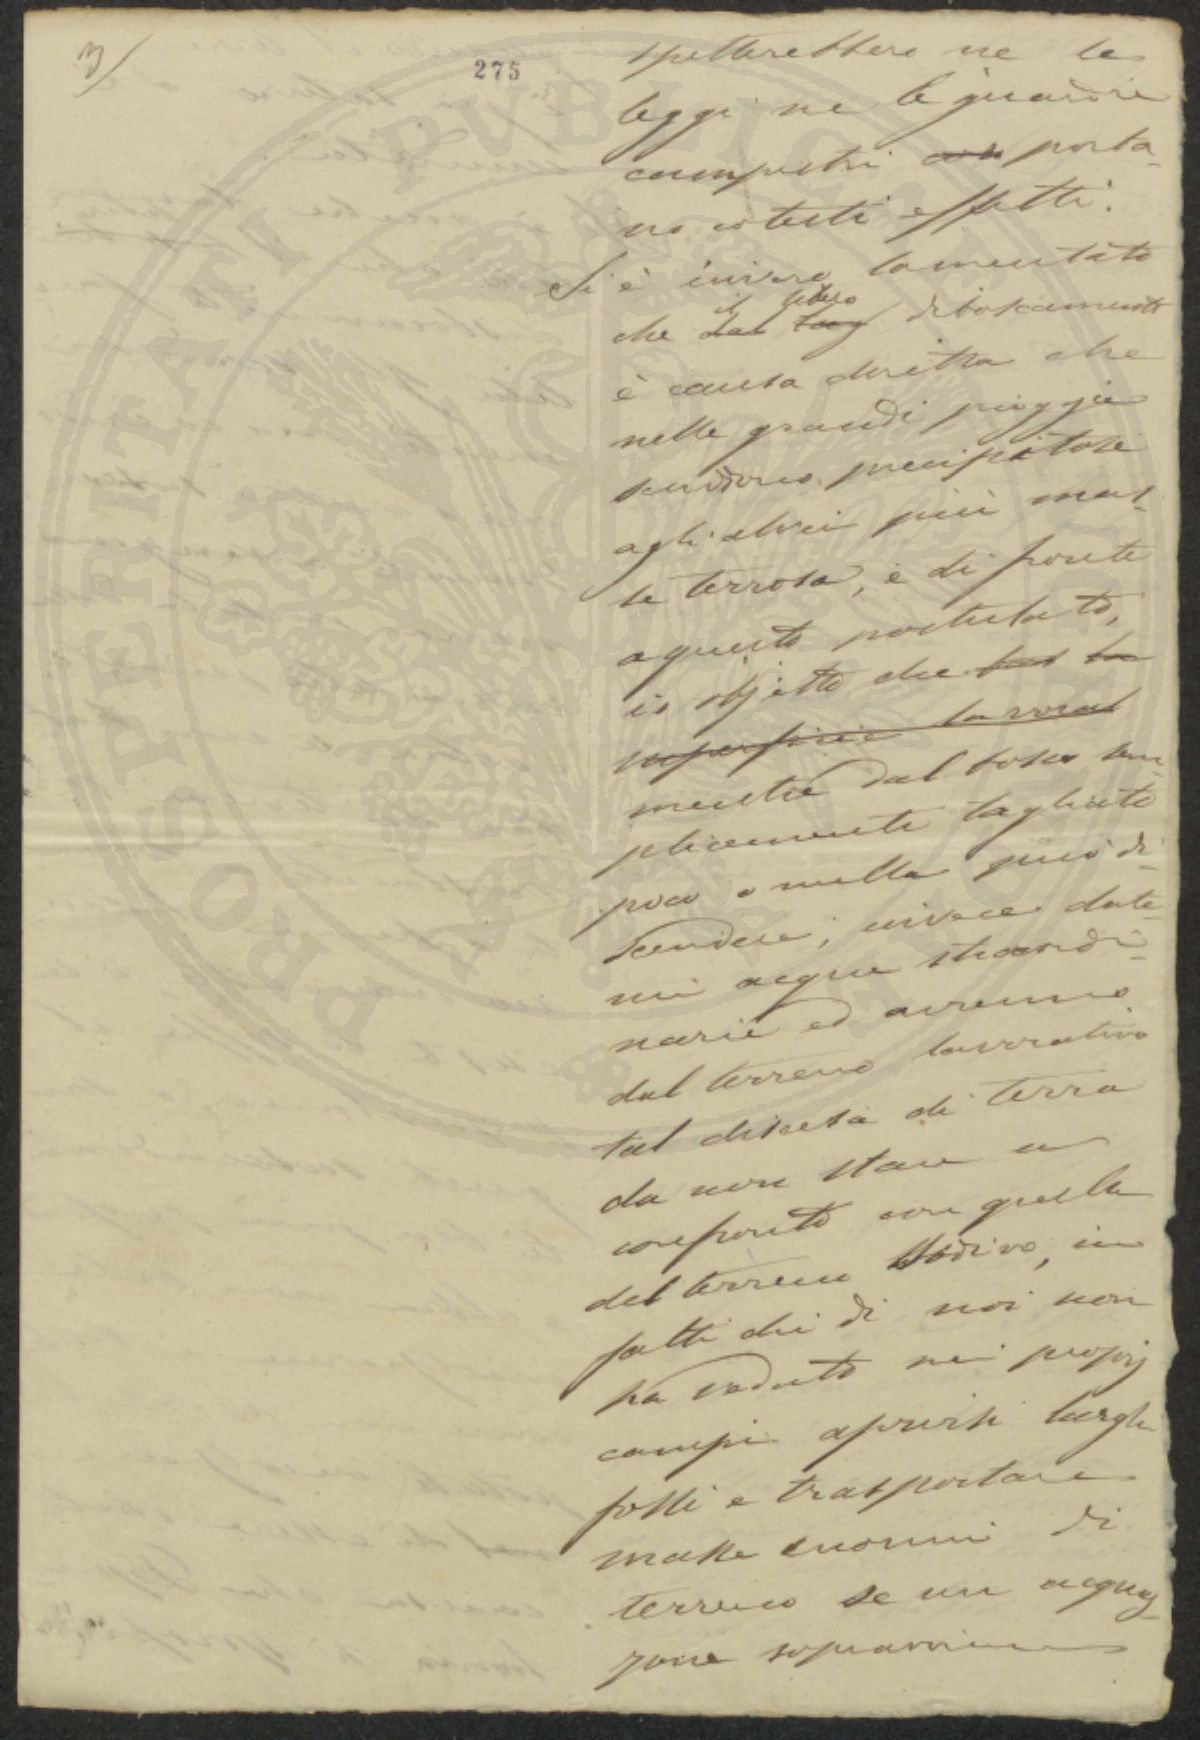 3/
275
spetterebbero ne le
leggi ne le guardie
campestri con porta-
no cotesti effetti.
Si è invero lamentato
che dal tag il libero diboscamento
è causa diretta che
nelle grandi pioggie
scendono precipitose
agli alvei più mas-
se terrose, e di fronte
a questo postulato,
io objetto che
superficie lavorat
mentre dal bosco sem-
plicemente tagliato
poco o nulla può di-
scendere; invece date-
mi acque straordi-
narie ed avremo
dal terreno lavorativo
tal discesa di terra
da non stare a
confronto con quella
del terreno sodivo, in
fatti chi di noi non
ha veduto nei proprj
campi aprirsi larghi
fossi e trasportare
masse enormi di
terreno se un acquaz-
zone sopravviene
PROSPERITATI PUBLICAE